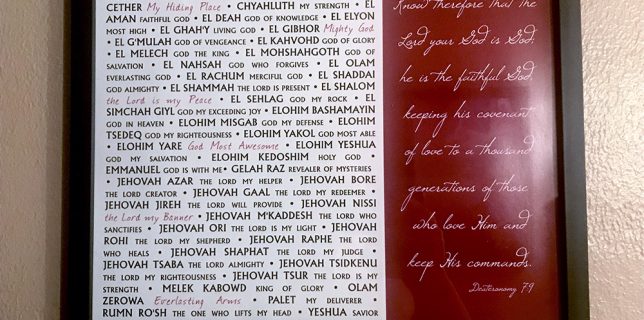 CETHER My Hiding Place • CHYAHLUTH MY STRENGTH • EL
AMAN FAITHFUL GOD • EL DEAH GOD OF KNOWLEDGE • EL ELYON
MOST HIGH • EL GHAH'Y LIVING GOD • EL GIBHOR Mighty God
• EL G'MULAH GOD OF VENGEANCE • EL KAHVOHD GOD OF GLORY
• EL MELECH GOD THE KING • EL MOHSHAHGOTH GOD OF
SALVATION • EL NAHSAH GOD WHO FORGIVES • EL OLAM
EVERLASTING GOD • EL RACHUM MERCIFUL GOD • EL SHADDAI
GOD ALMIGHTY • EL SHAMMAH THE LORD IS PRESENT • EL SHALOM
the Lord is my Peace • EL SEHLAG GOD MY ROCK • EL
SIMCHAH GIYL GOD MY EXCEEDING JOY • ELOHIM BASHAMAYIN
GOD IN HEAVEN • ELOHIM MISGAB GOD MY DEFENSE • ELOHIM
TSEDEQ GOD MY RIGHTEOUSNESS • ELOHIM YAKOL GOD MOST ABLE
• ELOHIM YARE God Most Awesome • ELOHIM YESHUA
GOD MY SALVATION • ELOHIM KEDOSHIM HOLY GOD •
EMMANUEL GOD IS WITH ME • GELAH RAZ REVEALER OF MYSTERIES
• JEHOVAH AZAR THE LORD MY HELPER • JEHOVAH BORE
THE LORD CREATOR • JEHOVAH GAAL THE LORD MY REDEEMER •
JEHOVAH JIREH THE LORD WILL PROVIDE • JEHOVAH NISSI
the Lord my Banner • JEHOVAH M'KADDESH THE LORD WHO
SANCTIFIES • JEHOVAH ORI THE LORD IS MY LIGHT • JEHOVAH
ROHI THE LORD MY SHEPHERD • JEHOVAH RAPHE THE LORD
WHO HEALS • JEHOVAH SHAPHAT THE LORD MY JUDGE •
JEHOVAH TSABA THE LORD ALMIGHTY • JEHOVAH TSIDKENU
THE LORD MY RIGHTEOUSNESS • JEHOVAH TSUR THE LORD IS MY
STRENGTH • MELEK KABOWD KING OF GLORY • OLAM
ZEROWA Everlasting Arms • PALET MY DELIVERER •
RUMN RO'SH THE ONE WHO LIFTS MY HEAD • YESHUA SAVIOR
Know therefore that the
Lord your God is God;
he is the faithful God,
keeping his covenant
of love to a thousand
generations of those
who love Him and
keep His commands.
Deuteronomy 7:9